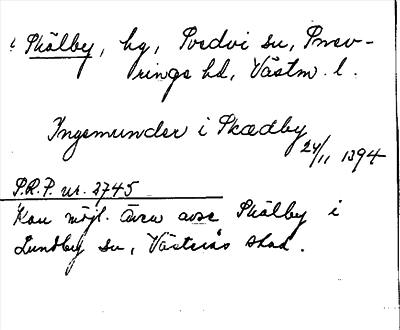 Skälby, by, Svedvi sn, Snev-
ringe hd, Västm. l.
Ingemunder i Skædby
24/11 1394
P.R.P. nr. 2745
Kan möjl. även avse Skälby i
Lundby sn, Västerås stad.